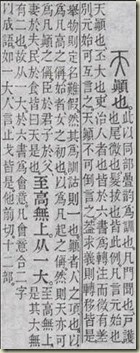 天 顚也
此以同部㬪韵爲訓也凡門聞也戸護
也尾微也髮拔也皆此例凡言元始也
天顚也丕大也吏治人者也皆於六書爲轉注而微有差
別元始可互言之天顚不可倒言之葢求義則轉移皆是
舉物則定名難假然其爲訓詁則一也顚者人之頂也以
爲凡高之偁始者女之初也以爲凡起之偁然則天亦可
爲凡顚之偁臣於君子於父
妻於夫民於食皆曰天是也
至高無上从一大
至高無上
是其大無
有二也故从一大於六書爲會意凡會意合二字
以成語如一大人言止戈皆是他前切十二部